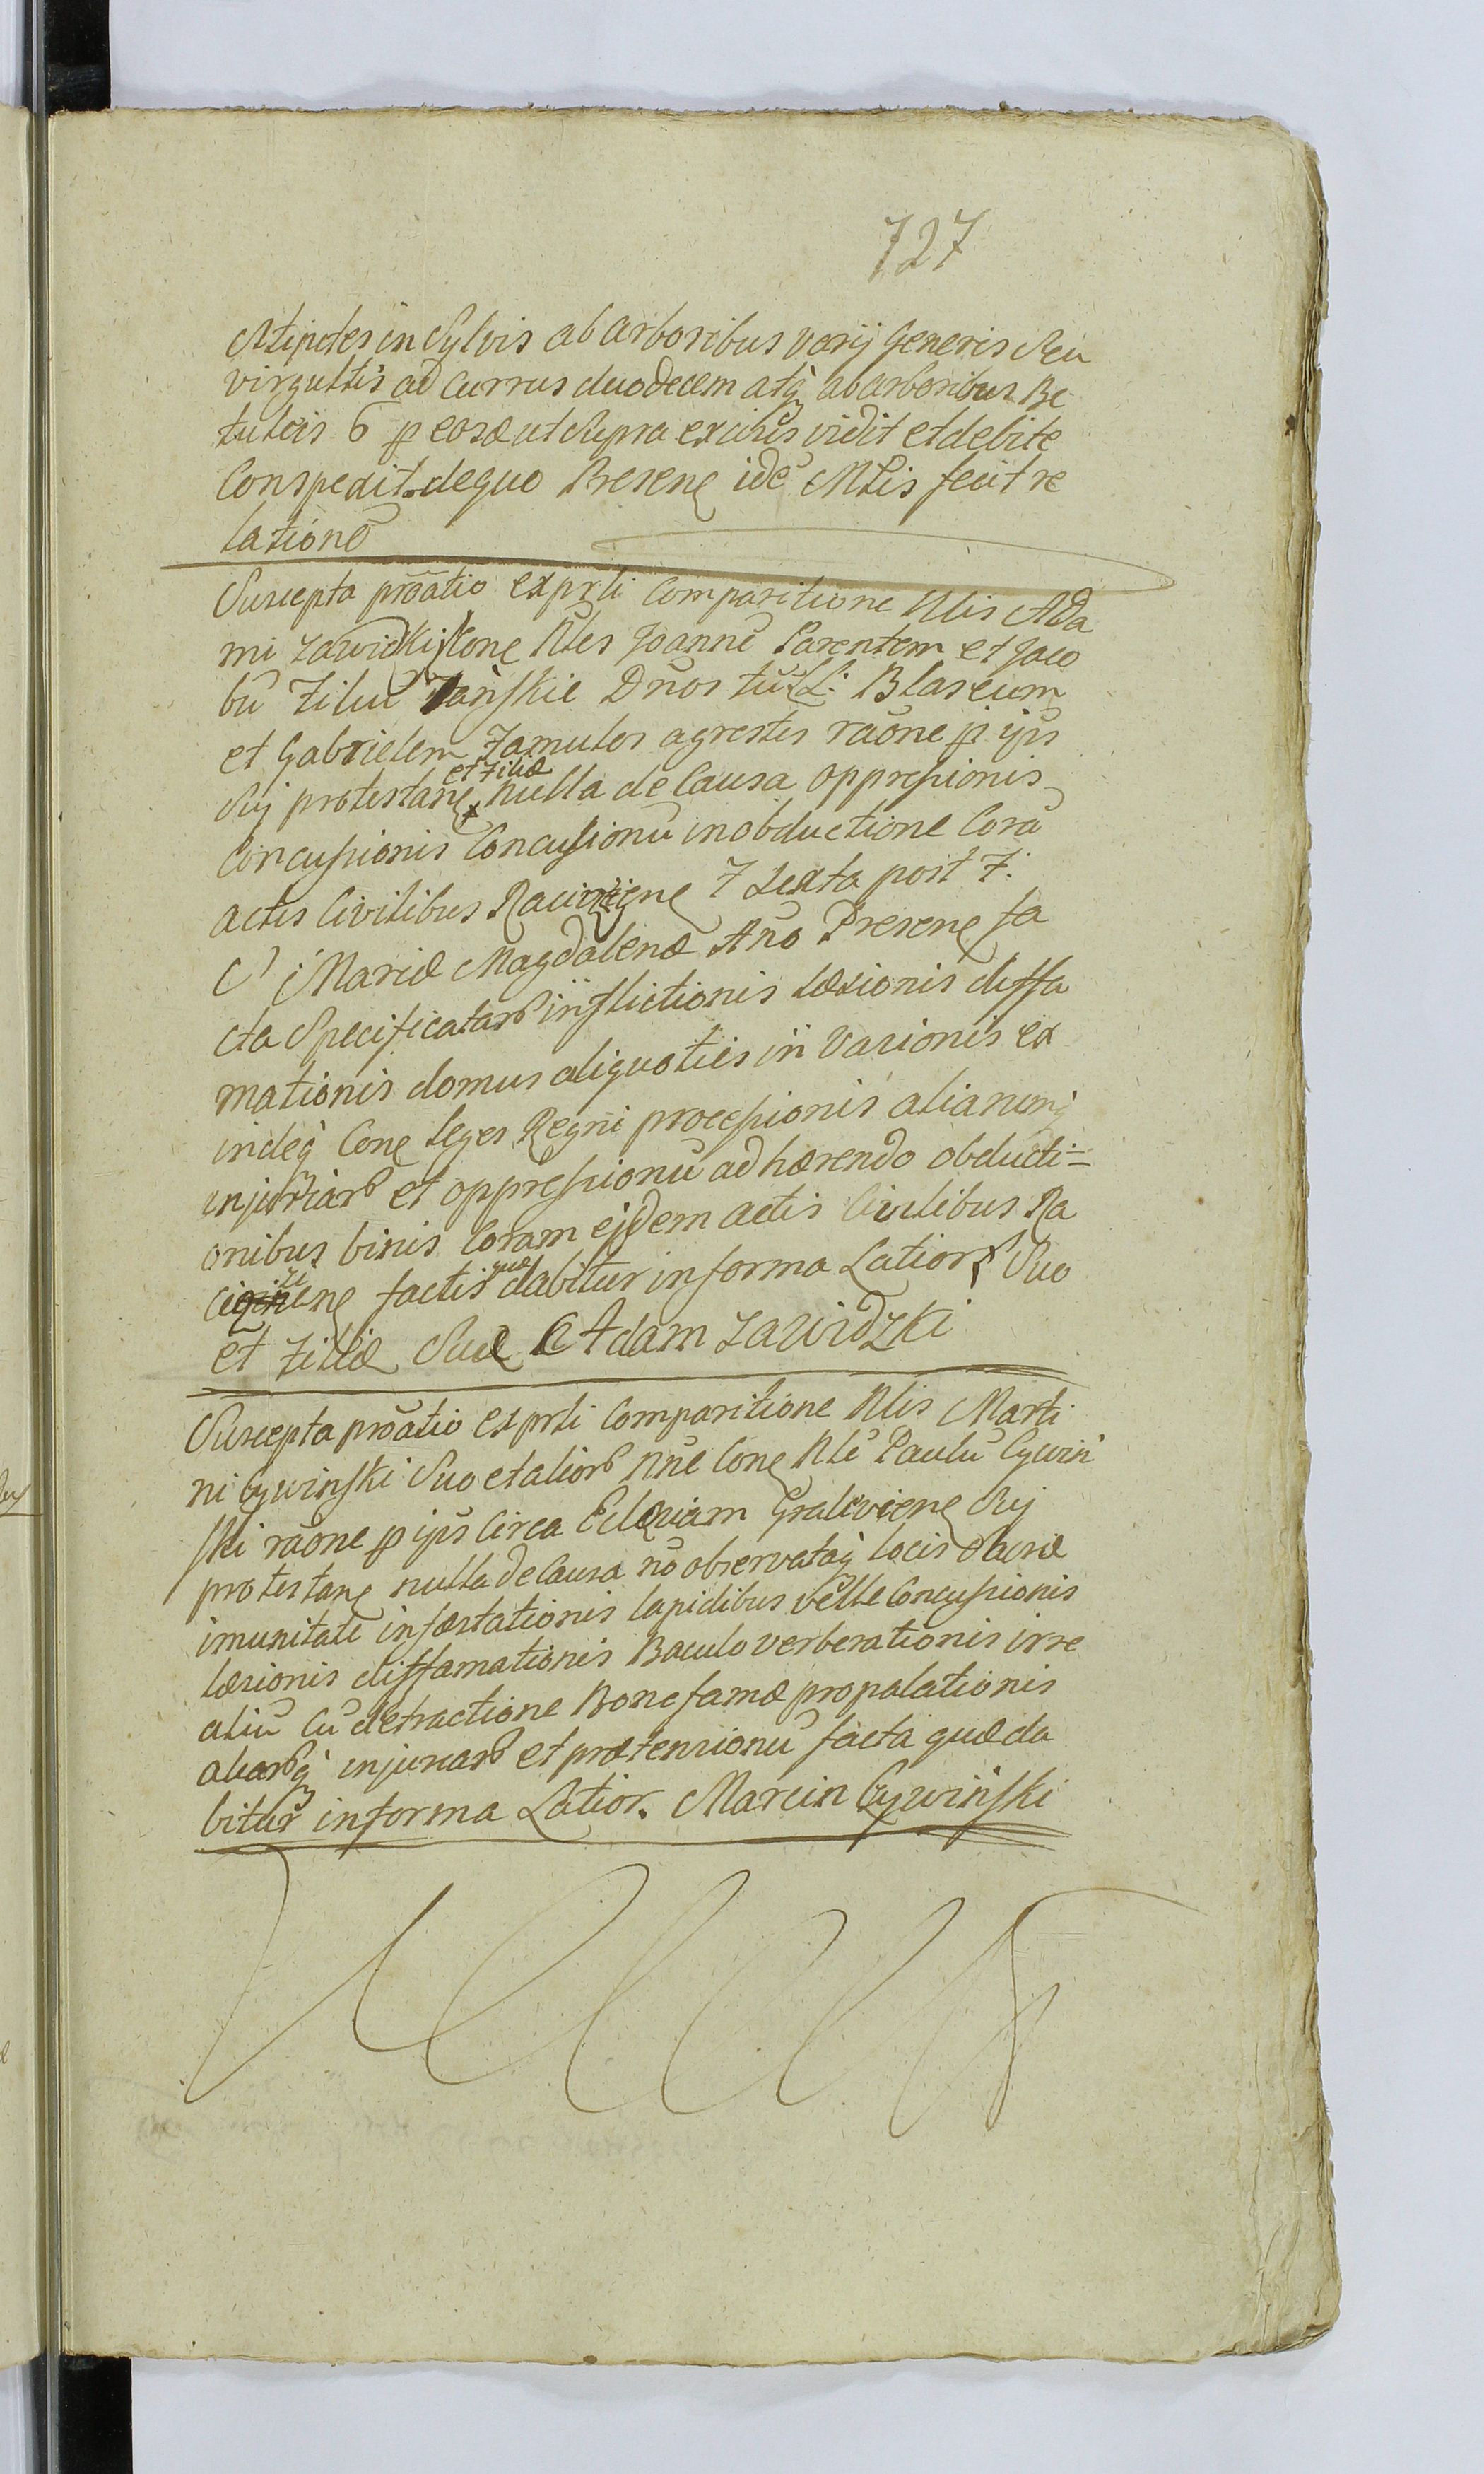 727
Stipites in Sylvis ab arboribus varij generis seu
virgultis ad currus duodecem atq́ ab arboribus Be
tuleis 6 p eosd ut supra excisis vidit et debite
Conspexit. de quo Presens idē Mtis fecit re
lationē
Suscepta prōatio ex prti Comparitione Nlis Ada
mi Zawidzki Cone Nles Joannē Parentem et Jaco
bū Filiū Dños tū LL: Blaseum
et Gabrielem Famulos agrestes rāone p ijs
et Filiæ
suj protestane nulla de Causa oppressionis
Concussionis Concussionū in obductione Corā
actis Civilibus F Sexta post F:
S Mariæ Magdalenæ Año Presene fa
cta Specificatarb inflictionis Læsionis diffa
mationis domus aliquoties in vasionis ex
indeq́ Cone Leges Regni processionis aliarumq́
injuriarb et oppressionū adhærendo obducti=
onibus binis Coram ejsdem actis Civilibus Ra
factis quæ dabitur in forma Latiori Suo
et Filiæ Suæ Adam Zawidzki
Suscepta prōatio ex prti Comparitione Nlis Marti
ni Cywinski Suo et aliorb Nñe Cone Nlē Paulū Cywin
ski rāone p ijs Circa Eclesiam Gralewiene Suj
protestane nulla de Causa nō observataq́ locis Sacræ
imunitate infæstationis lapidibus velle Concussionis
læsionis diffamationis Baculo verberationis irre
aliū cū detractione Bone famæ propalationis
aliarbq́ injuriarb et prætensionū facta quæ da
bitur in forma Latior. Marcin Cywiński